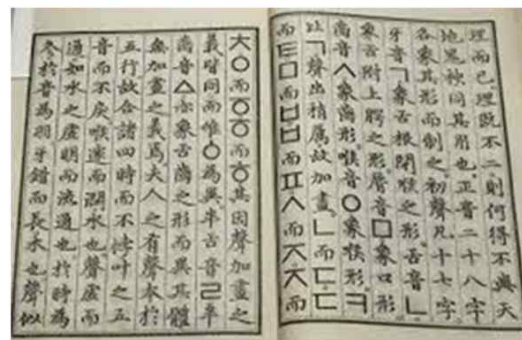 理而已理旣不二則何得不與天
地鬼神同其用也正音二十八字
各象其形而制之初聲凡十七字
牙音ㄱ象舌根閉喉之形舌音ㄴ
象舌附上腭之形脣音ㅁ象口形
齒音ㅅ象齒形喉音ㅇ象喉形ㅋ
比ㄱ聲出稍厲故加畫ㄴ而ㄷㄷ
而ㅌㅁ而ㅂㅂ而ㅍㅅ而ㅈㅈ而
ㅊㅇ而ㆆㆆ而ㅎ其因聲加畫之
義皆同而唯ㆁ為異半舌音ㄹ半
齒音ㅿ亦象舌齒之形而異其體
無加畫之義焉夫人之有聲本於
五行故合諸四時而不悖叶之五
音而不戾喉邃而潤水也聲虛而
通如水之虛明而流通也於時為
冬於音為羽牙錯而長木也聲似